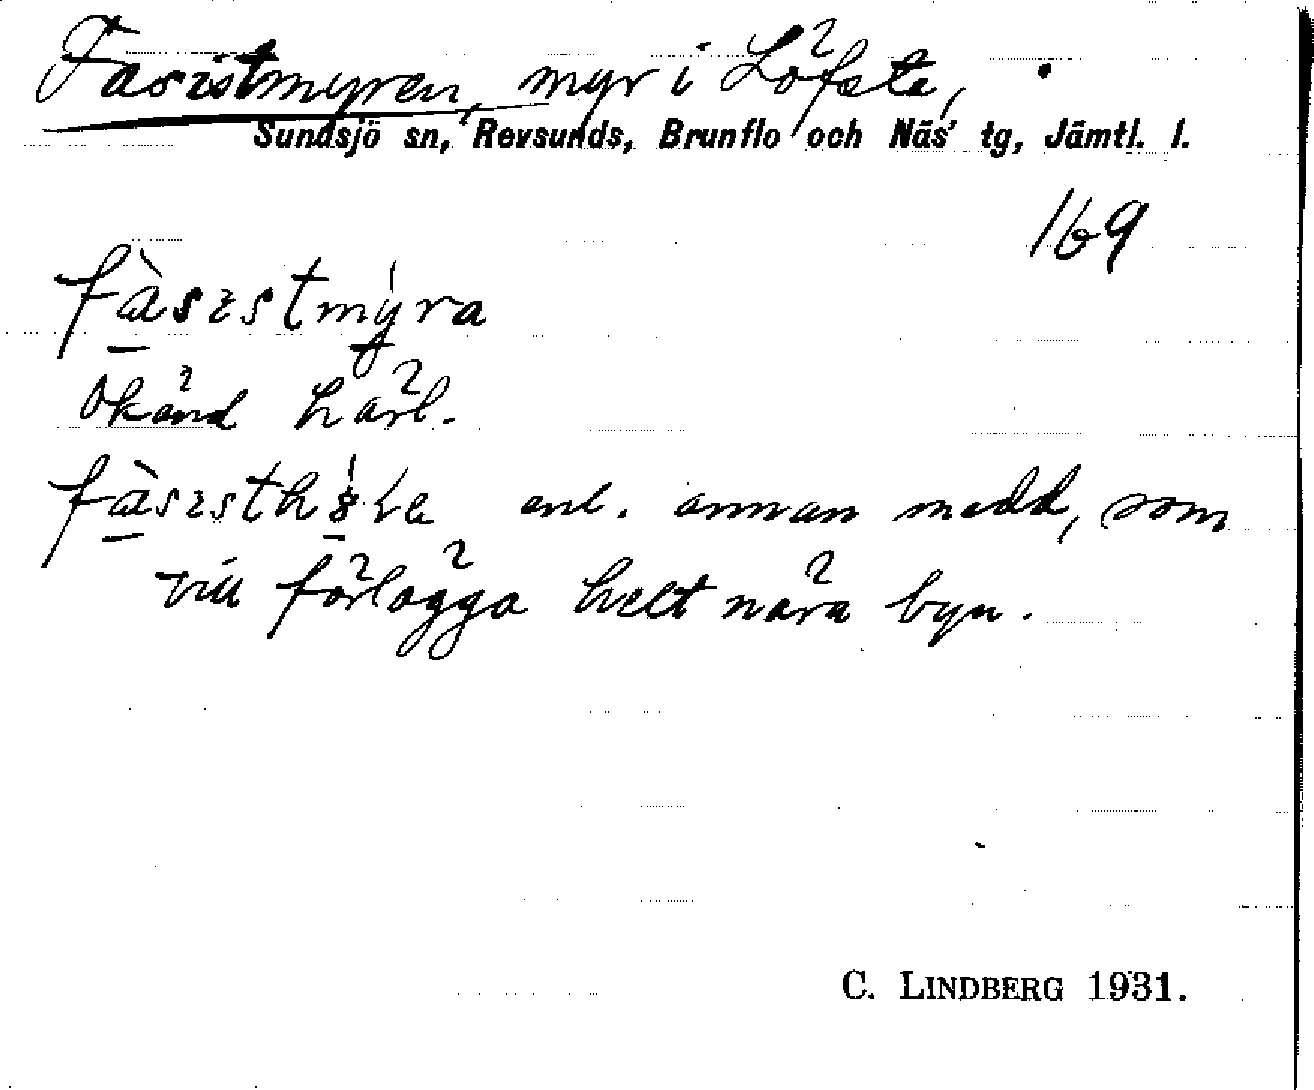 Fasistmyren, myr i Löfsta,
Sundsjö sn, Revsunds, Brunflo och Näs tg, Jämtl. l.
169
fàsɪstmýra
Okänd härl.
enl. annan medd, som
vill förlägga helt nära byn.
C. LINDBERG 1931.